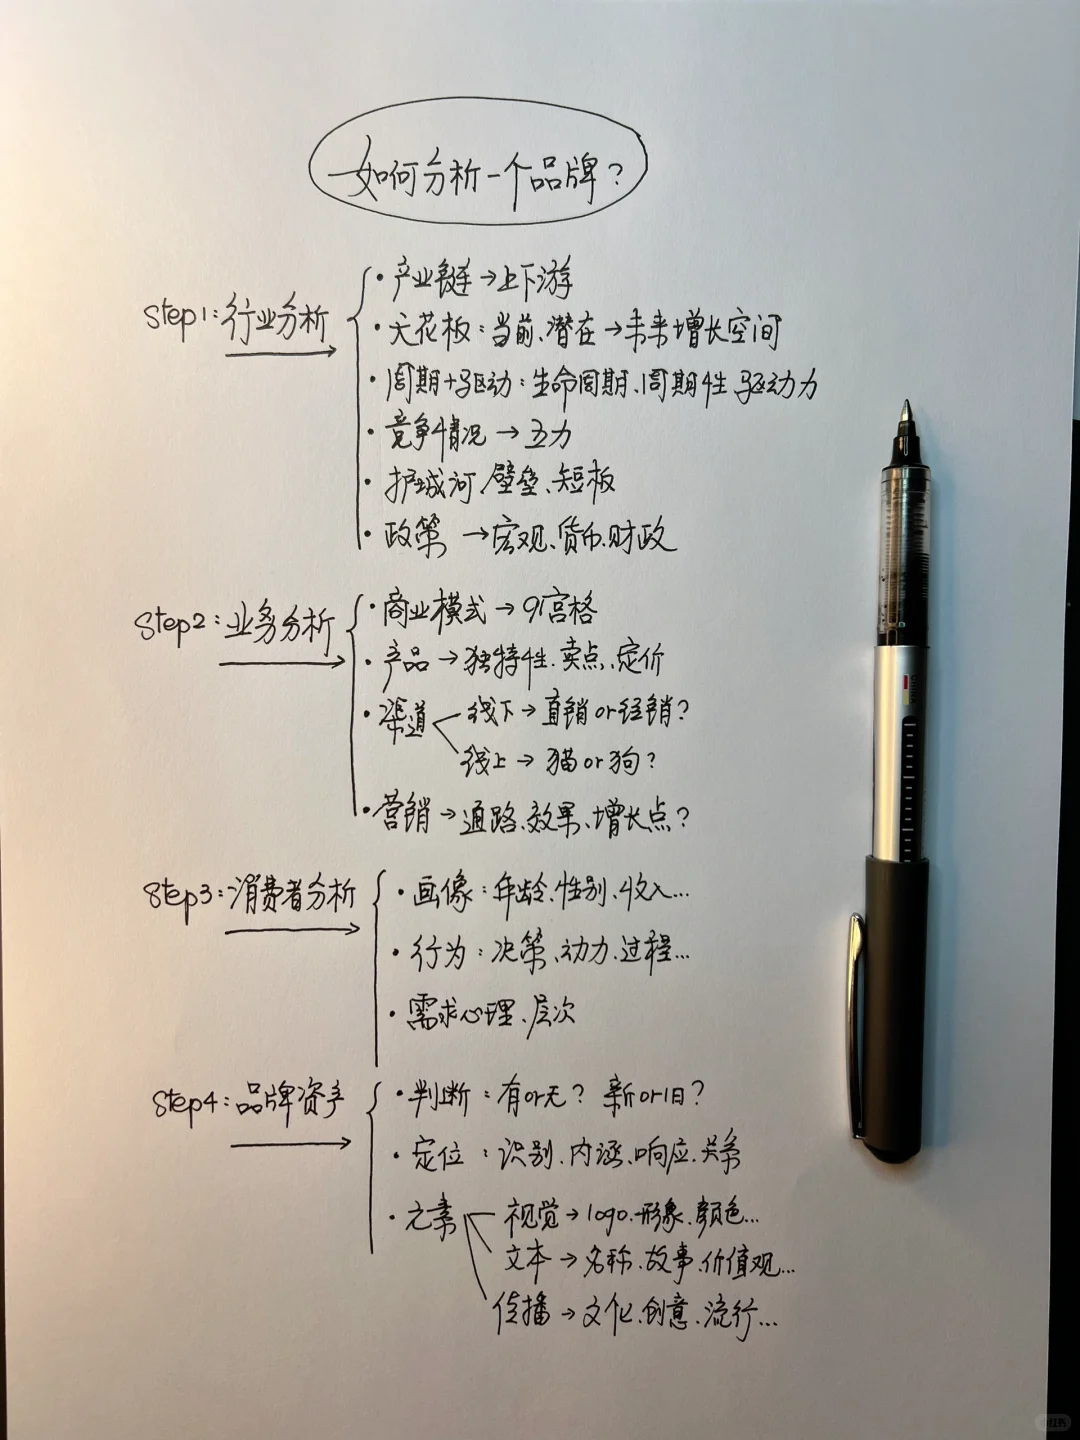 如何分析一个品牌？
Step1：行业分析
·产业链→上下游
·天花板：当前、潜在→未来增长空间
·周期+驱动：生命周期、周期性、驱动力
·竞争情况→五力
·护城河、壁垒、短板
·政策→宏观、货币、财政
Step2：业务分析
·商业模式→9宫格
·产品→独特性、卖点、定价
·渠道
线下→直销or经销？
线上→猫or狗？
·营销→通路、效果、增长点？
Step3：消费者分析
·画像：年龄、性别、收入...
·行为：决策、动力、过程...
·需求心理、层次
Step4：品牌资产
·判断：有or无？ 新or旧？
·定位：识别、内涵、响应、关系
·元素
视觉→logo、形象、颜色...
文本→名称、故事、价值观...
传播→文化、创意、流行...